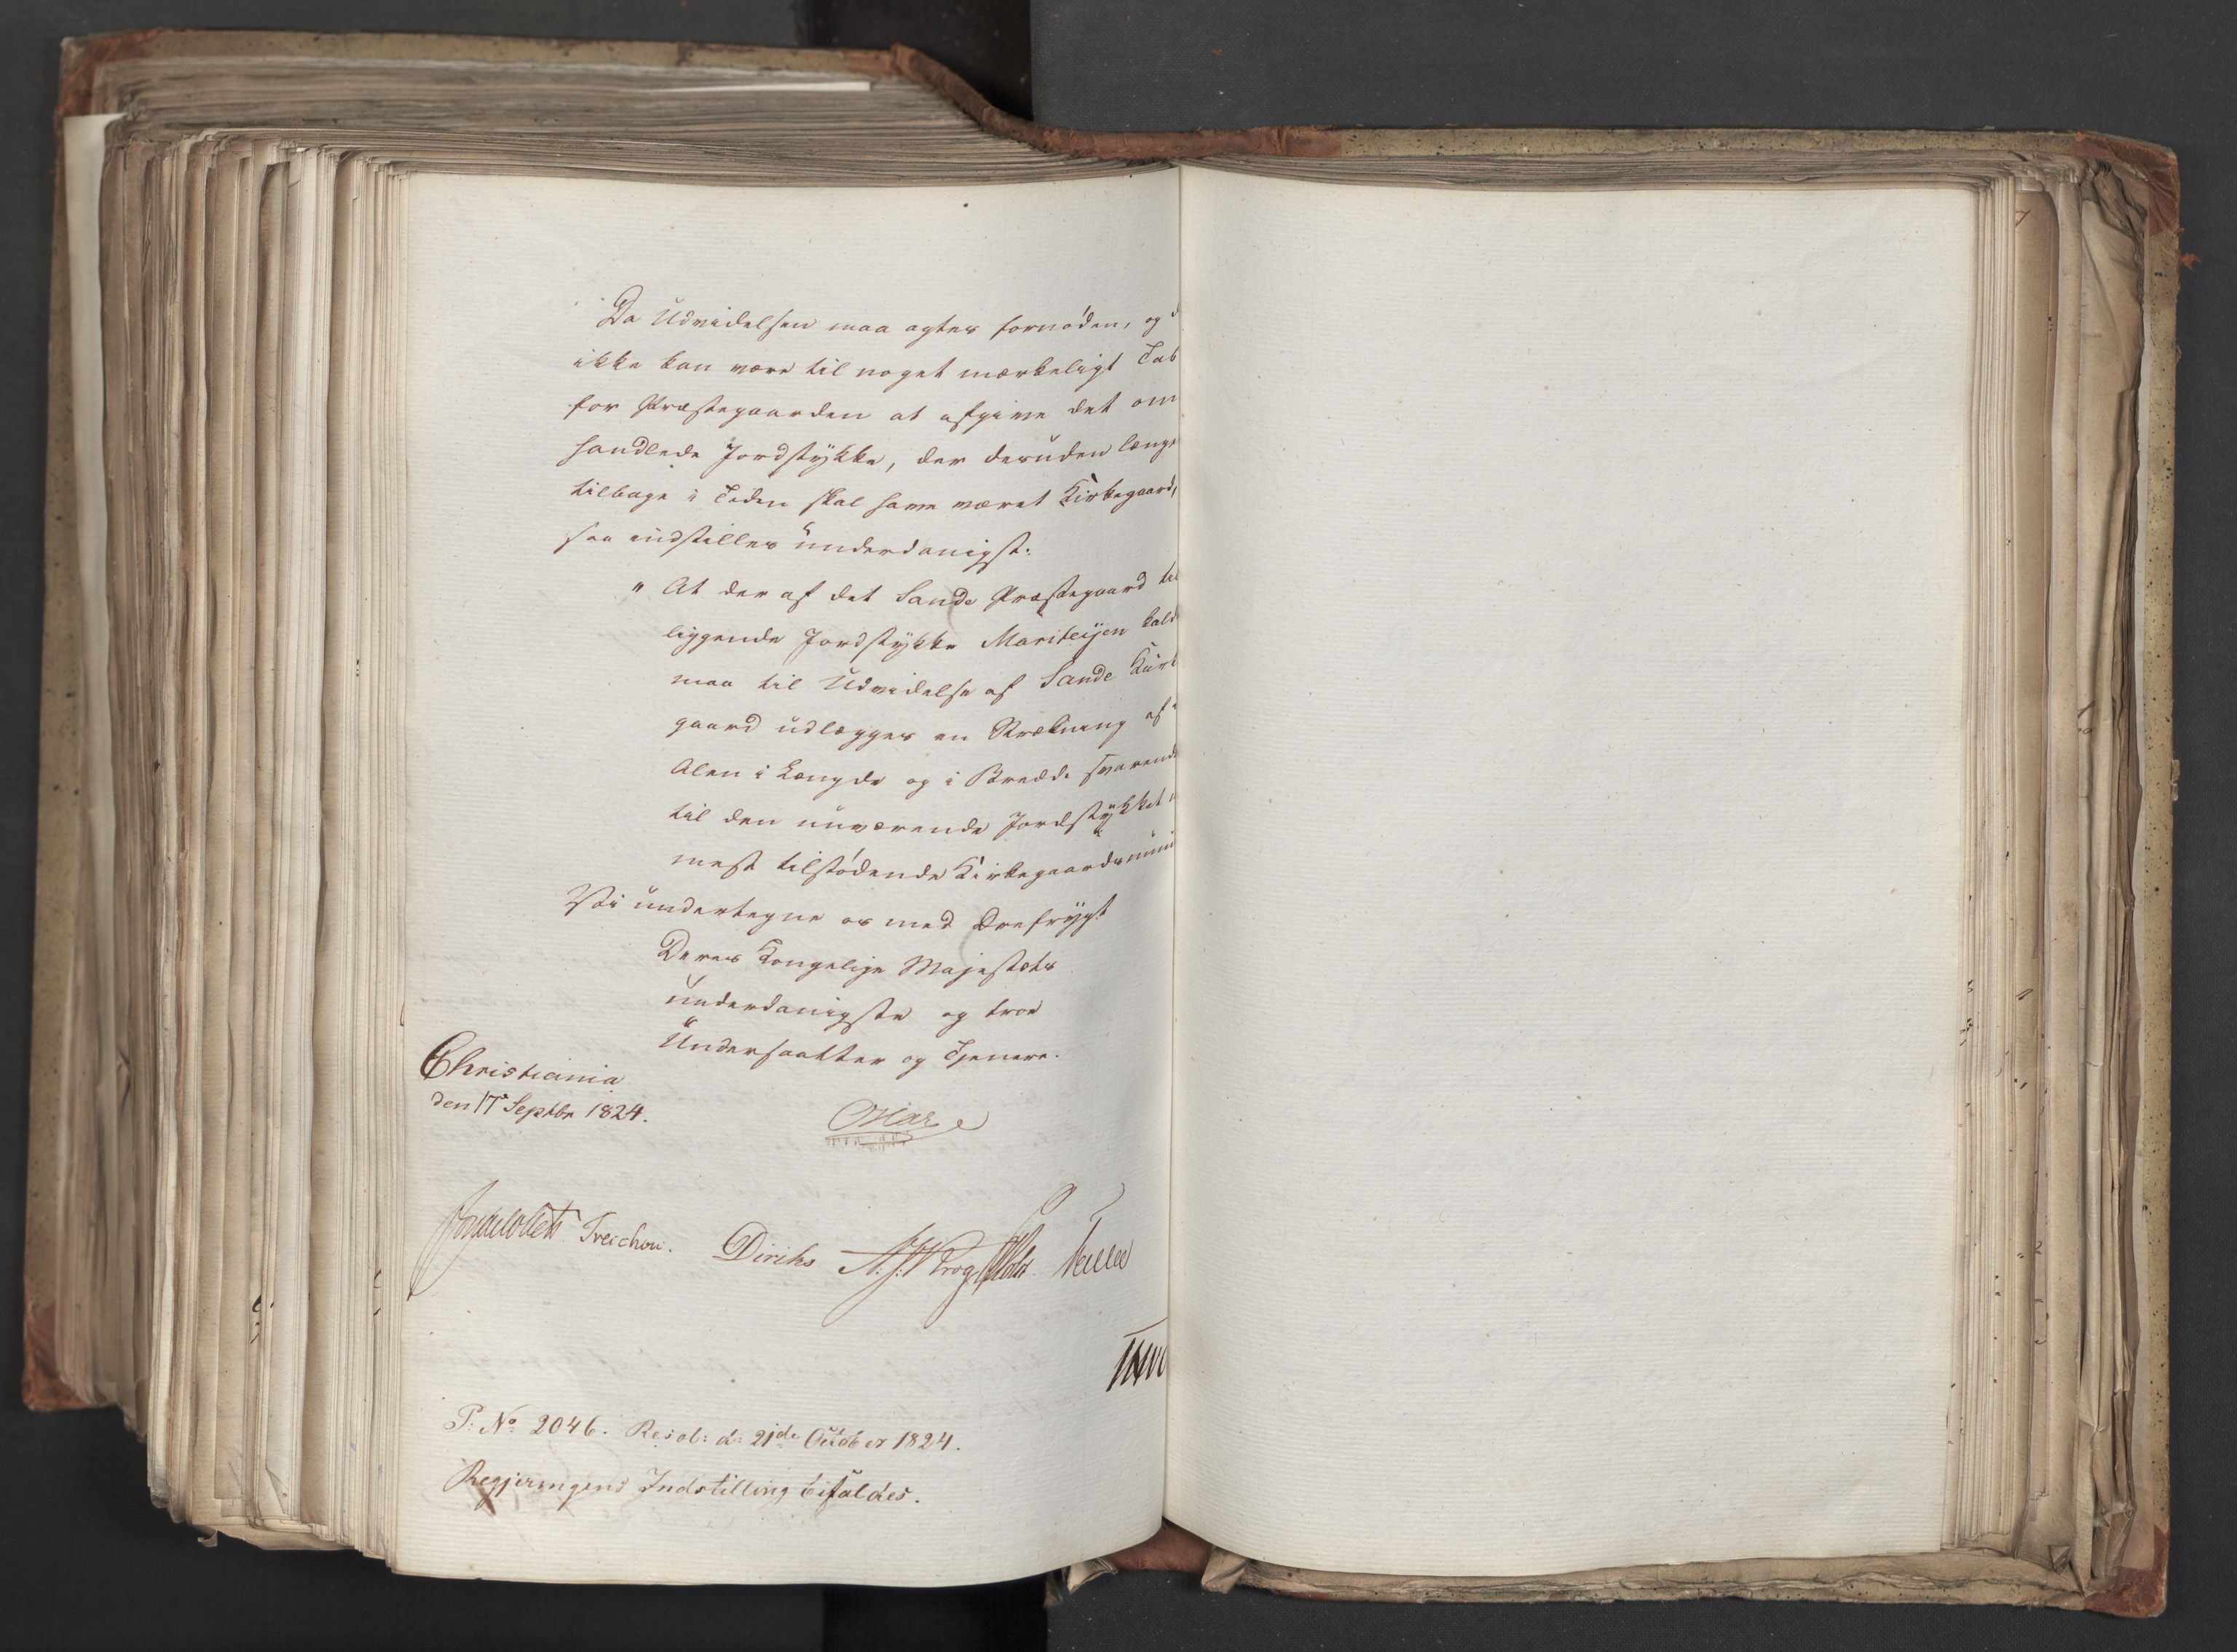 Da Udvidelsen maa agtes fornöden, og d
ikke kan være til noget mærkeligt Tab
for Præstegaarden at afgive det om
handlede Jordstÿkke, der desuden længe
tilbage i Tiden skal have været Kirkegaard,
saa indstilles underdanigst:
" At der af det Sande Præstegaard til
liggende Jordstÿkke Marileijen kald
maa til Udvidelse af Sande Kirk
gaard udlægges en Strækning af
Alen i Længde og i Bredde svarende
til den nuværende Jordstÿkket n
mest tilstödende Kirkegaardsmuur
Vi undertegne os med Ærefrÿgt
Deres Kongelige Majestæts
underdanigste og troe
Undersaatter og Tjenere.
Christiania
den 17 Septbr 1824.
Oscar
Treschow. Diriks
P: No 2046. Resol: d: 21de October 1824.
Regjeringens Indstilling bifaldes.